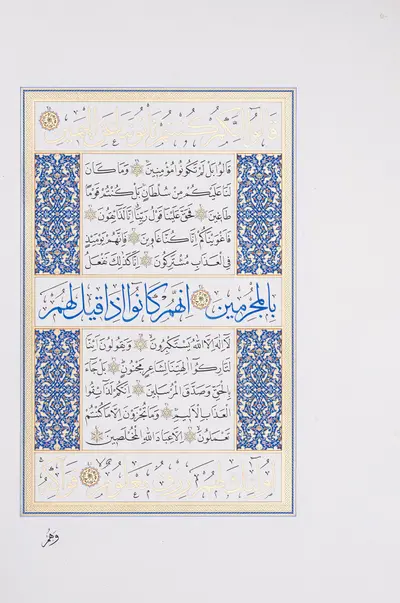 قَالُوا إِنَّكُمْ كُنْتُمْ تَأْتُونَنَا عَنِ الْيَمِينِ
قَالُوا بَلْ لَمْ تَكُونُوا مُؤْمِنِينَ وَمَا كَانَ
لَنَا عَلَيْكُمْ مِنْ سُلْطَانٍ بَلْ كُنْتُمْ قَوْمًا
طَاغِينَ فَحَقَّ عَلَيْنَا قَوْلُ رَبِّنَا إِنَّا لَذَائِقُونَ
فَأَغْوَيْنَاكُمْ إِنَّا كُنَّا غَاوِينَ فَإِنَّهُمْ يَوْمَئِذٍ
فِي الْعَذَابِ مُشْتَرِكُونَ إِنَّا كَذَلِكَ نَفْعَلُ
بِالْمُجْرِمِينَ إِنَّهُمْ كَانُوا إِذَا قِيلَ لَهُمْ
لَا إِلَهَ إِلَّا اللَّهُ يَسْتَكْبِرُونَ وَيَقُولُونَ أَئِنَّا
لَتَارِكُوا آلِهَتِنَا لِشَاعِرٍ مَجْنُونٍ بَلْ جَاءَ
بِالْحَقِّ وَصَدَّقَ الْمُرْسَلِينَ إِنَّكُمْ لَذَائِقُوا
الْعَذَابِ الْأَلِيمِ وَمَا تُجْزَوْنَ إِلَّا مَا كُنْتُمْ
تَعْمَلُونَ إِلَّا عِبَادَ اللَّهِ الْمُخْلَصِينَ
أُولَئِكَ لَهُمْ رِزْقٌ مَعْلُومٌ فَوَاكِهُ
وَهُمْ